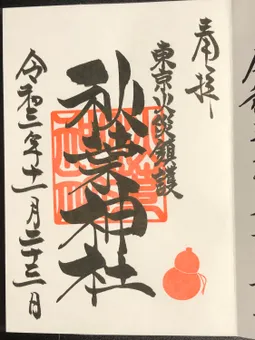 奉拝
東京火伏鎮護
秋葉神社
令和三年十一月二十三日